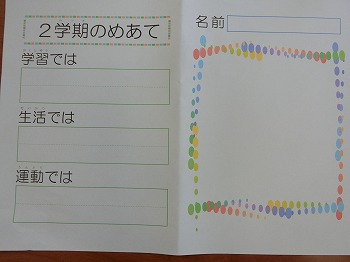 2学期のめあて
学習では
生活では
運動では
名前